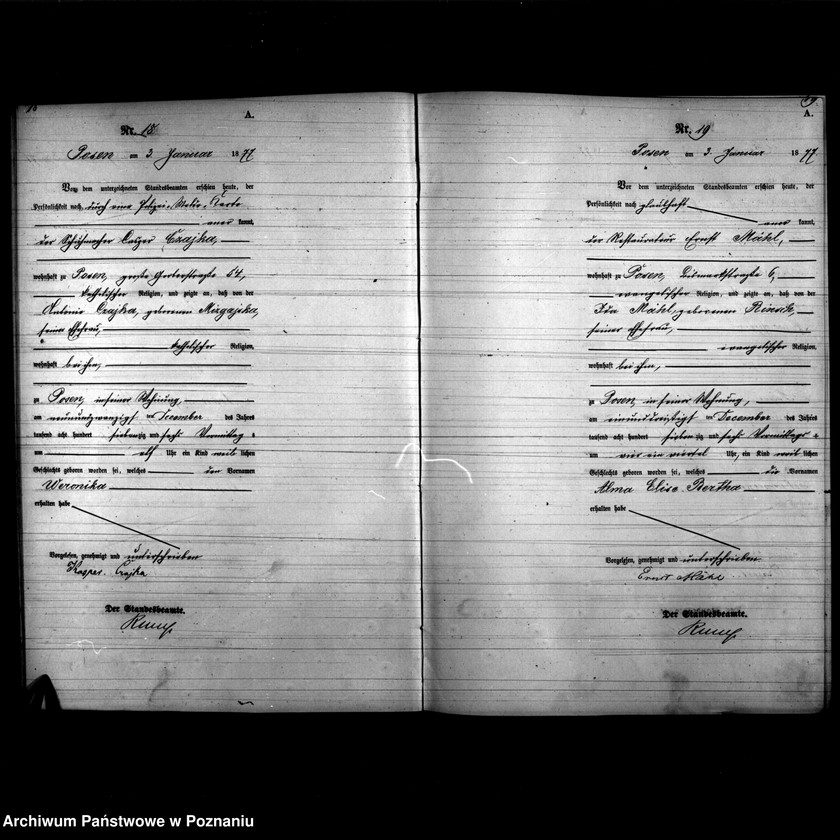 A.
Nr. 18
Posen am 3. Januar 1877
Vor dem unterzeichneten Standesbeamten erschien heute, der
Persönlichkeit nach durch eine Polizei-Melde-Karte
aner kannt,
der Schuhmacher Casper Czajka,
wohnhaft zu Posen, große Gerberstraße 64,
katholischer Religion, und zeigte an, daß von der
Antonie Czajka, geborenen Mizgajska,
seiner Ehefrau,
katholischer Religion,
wohnhaft bei ihm,
zu Posen, in seiner Wohnung,
am neunundzwanzigsten December des Jahres
tausend acht hundert siebenzig und sechs Vormittags
um elf Uhr ein Kind weib lichen
Geschlechts geboren worden sei, welches den Vornamen
Weronika
erhalten habe
Vorgelesen, genehmigt und unterschrieben
Kasper Czajka
Der Standesbeamte.
19
A.
Nr. 19
Posen am 3. Januar 1877
Vor dem unterzeichneten Standesbeamten erschien heute, der
Persönlichkeit nach glaubhaft
aner kannt,
der Restaurateur Ernst Mähl,
wohnhaft zu Posen, Bismarkstraße 6,
evangelischer Religion, und zeigte an, daß von der
Ida Mähl, geborenen
seiner Ehefrau,
evangelischer Religion,
wohnhaft bei ihm,
zu Posen, in seiner Wohnung,
am einunddreißigsten December des Jahres
tausend acht hundert sieben zig und sechs Vormittags
um vier ein viertel Uhr, ein Kind weib lichen
Geschlechts geboren worden sei, welches die Vornamen
Alma Elise Bertha
erhalten habe
Vorgelesen, genehmigt und unterschrieben
Ernst Mähl
Der Standesbeamte.
Archiwum Państwowe w Poznaniu